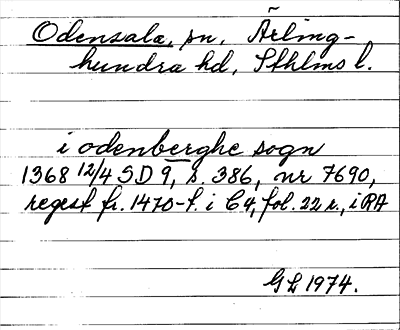 Odensala, sn, Ärling-
hundra hd, Sthlms l.
i odenberghe sogn
1368 12/4 SD 9, s. 386, nr 7690,
regest fr. 1470-t. i C4, fol. 22 r., i RA
GL 1974.